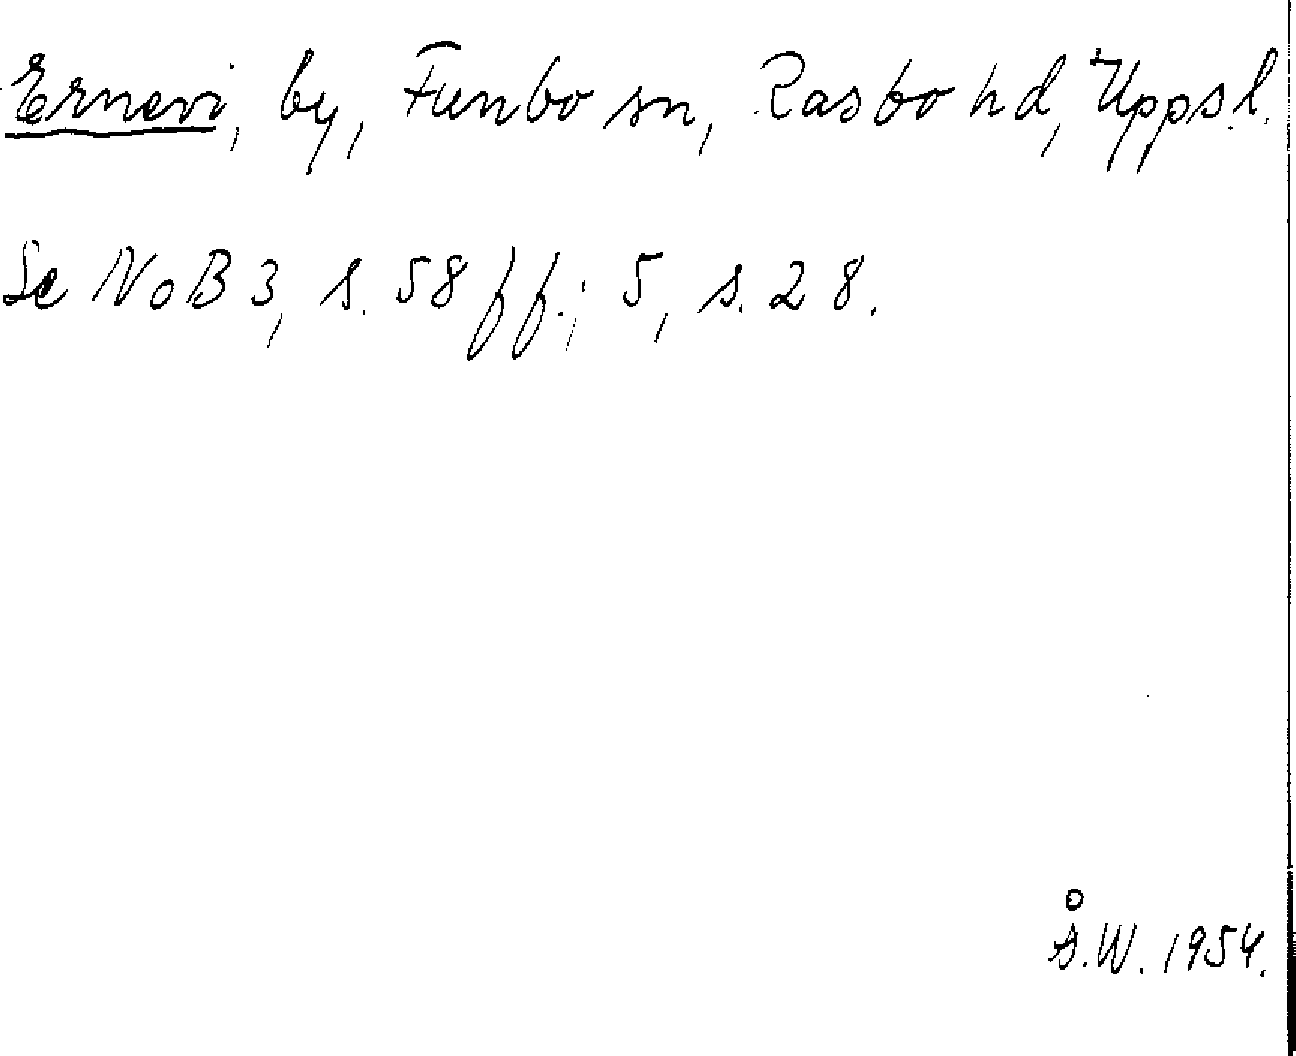 Ernevi, by, Funbo sn, Rasbo hd, Uppsl.
Se NoB 3, s. 58 ff.; 5, s. 28.
Å.W. 1954.